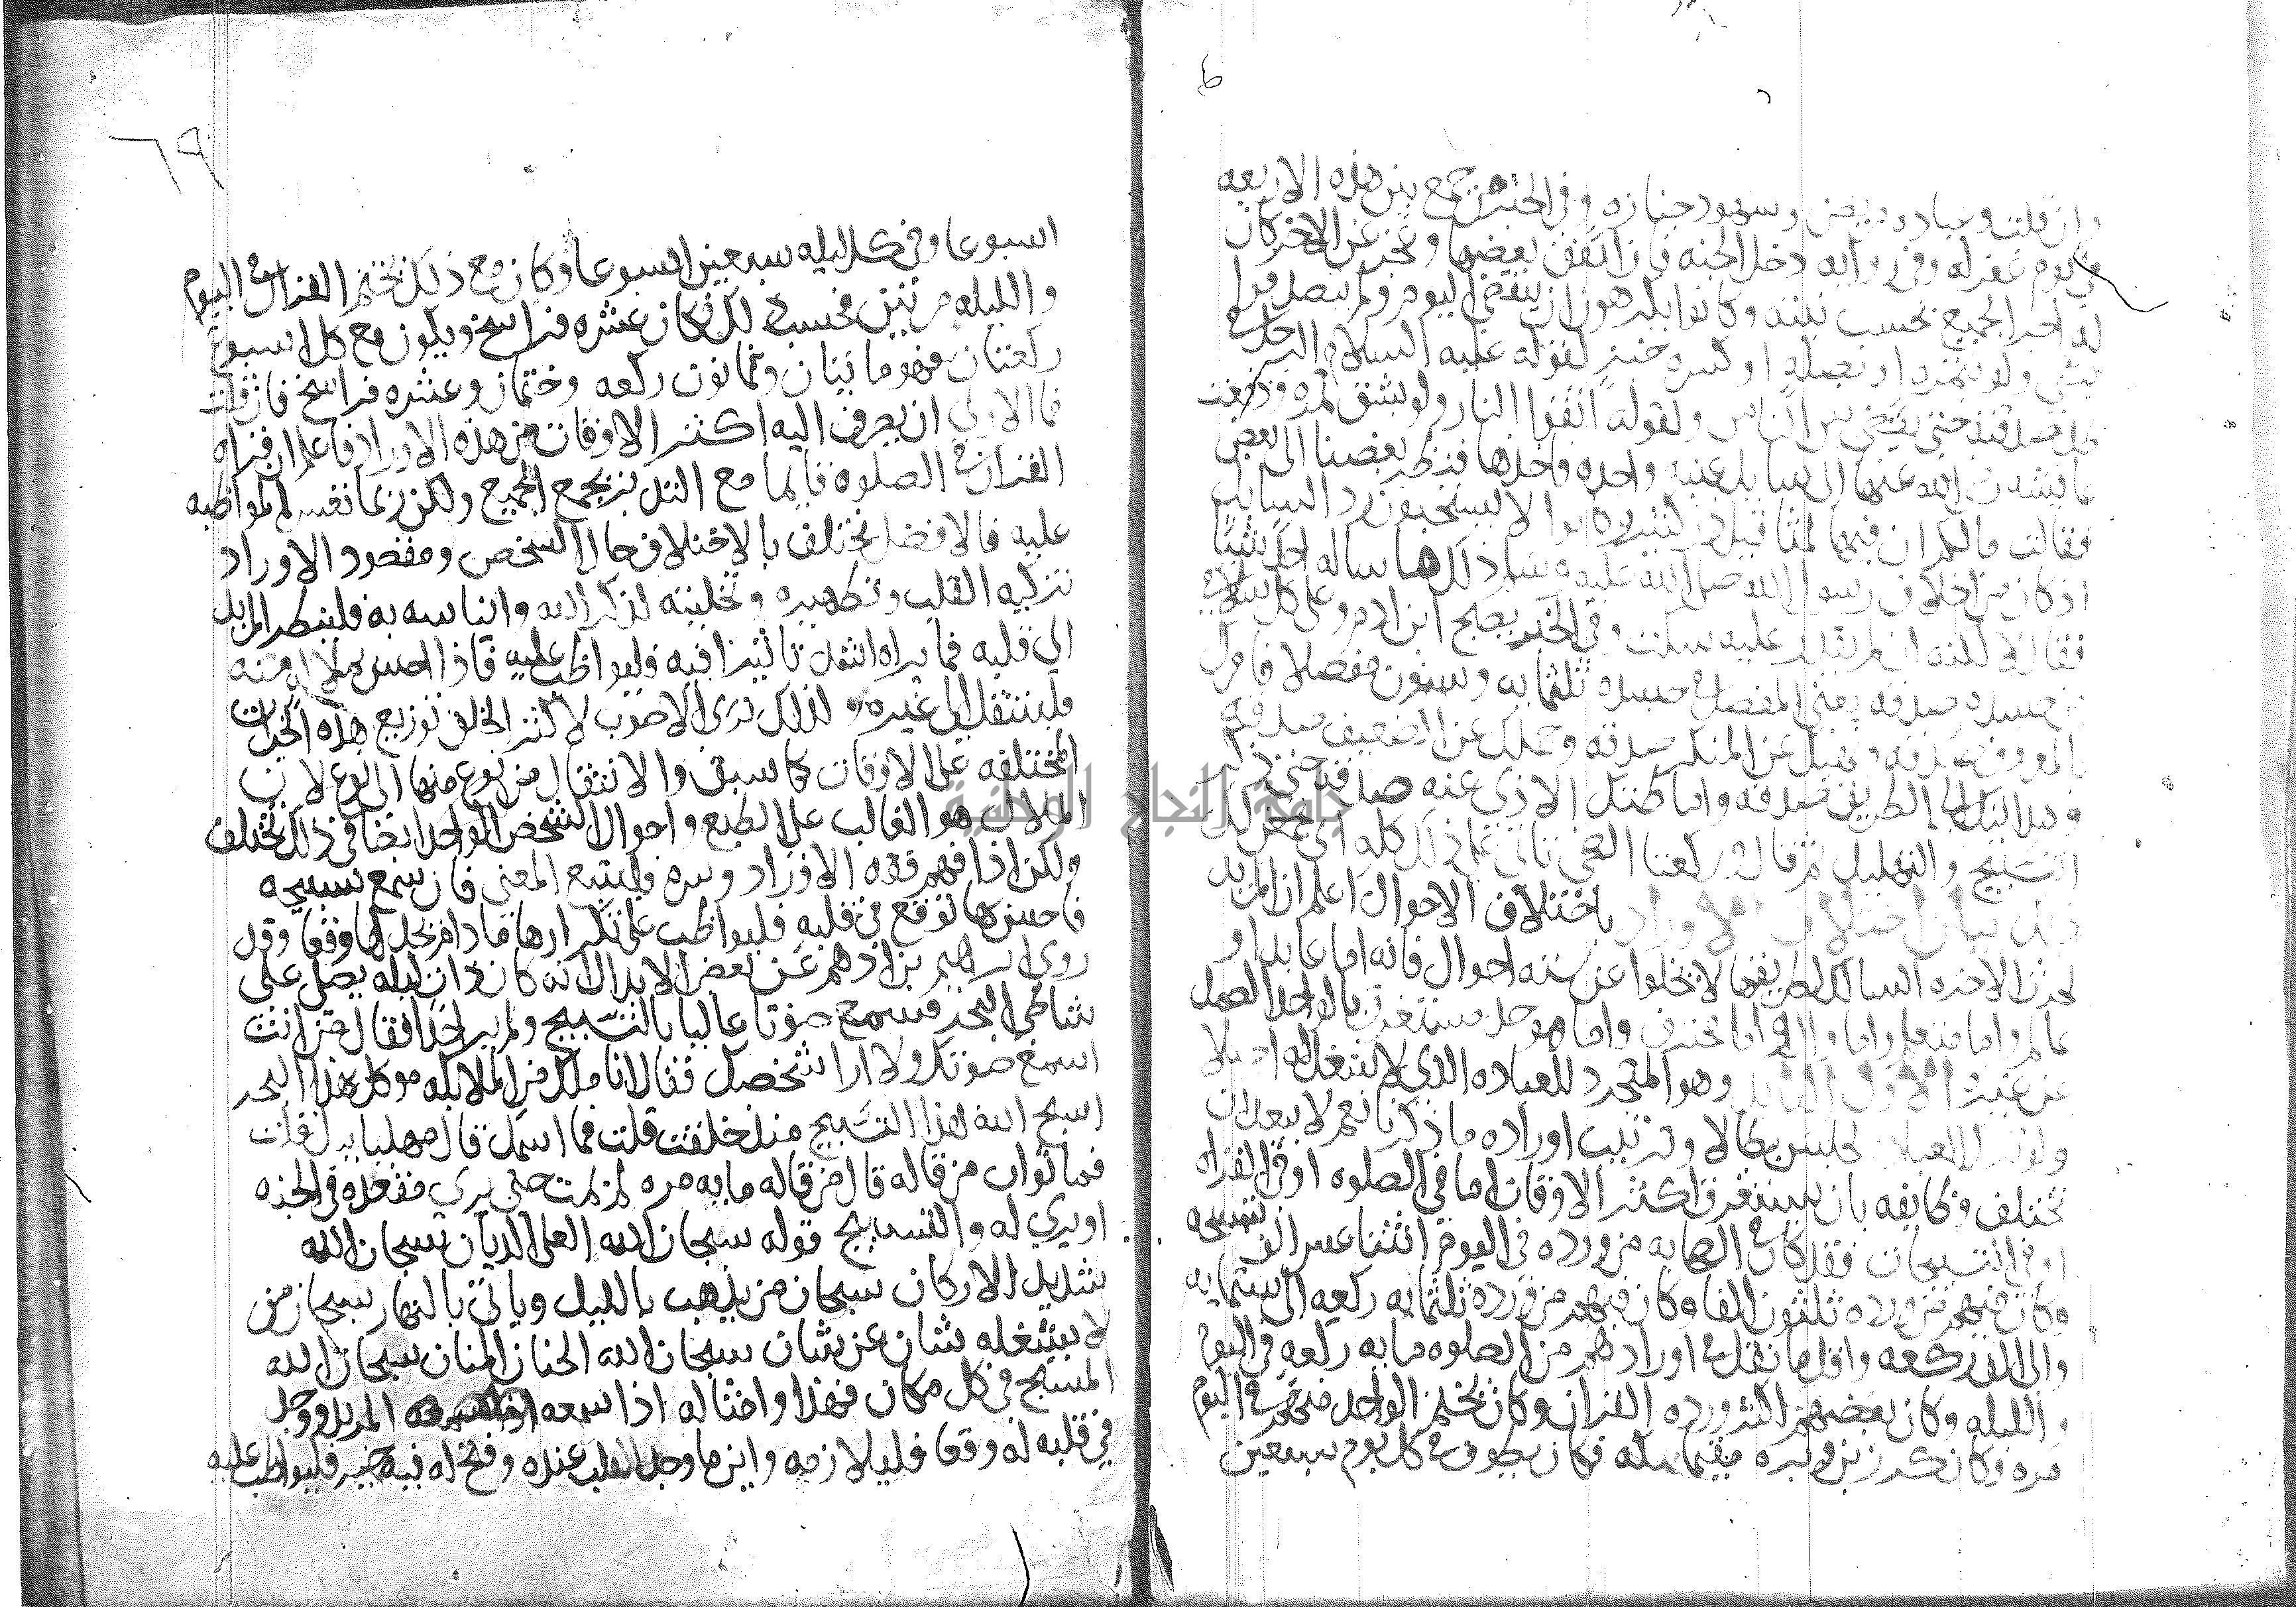 وان قلت وعياده مريض وشهود جنازه وفي الخبر من جمع بين هذه الاربعه
في يوم غفر له وفي روايه دخل الجنه فان اتفق بعضها وعجز عن الاخر كان
له اجر الجميع بحسب نيته وكانوا يكرهون ان ينقضي اليوم ولم يتصدقوا فيه
بشي ولو بتمره او بصله او كسره خبز لقوله عليه السلام الرجل في
ظل صدقته حتى يقضي بين الناس ولقوله اتقوا النار ولو بشق تمره ودفعت
عايشه رضي الله عنها الى سايل عنبه واحده واخذها فنظر بعضنا الى بعض
فقالت مالكم ان فيها لمثاقيل ذر كثير وكانوا لا يستحبون رد السايل
اذ كان من اخلاق رسول الله صلى الله عليه وسلم ذلك ما ساله احد شيئا
فقال لا لكنه ان لم يقدر عليه سكت وفي الخبر يصبح ابن ادم وعلى كل سلامى
من جسده صدقه يعني المفصل في جسده ثلثمايه وستون مفصلا فامرك
بالمعروف صدقه ونهيك عن المنكر صدقه وحملك عن الضعيف صدقه
وهدايتك الى الطريق صدقه واماطتك الاذى عنه صدقه حتى ذكر
التسبيح والتهليل ثم قال وركعتا الضحى تاتي على ذلك كله
بيان اختلاف الاوراد باختلاف الاحوال اعلم ان المريد
لحرث الاخره السالك لطريقها لا يخلوا عن سته احوال فانه اما عابد او
عالم واما متعلم واما وال واما محترف واما موحد مستغرق بالواحد الصمد
عن غيره الاول العابد وهو المتجرد للعباده الذي لا شغل له اصلا
ولو ترك العباده لجلس بطالا وترتيب اوراده ما ذكرنا نعم لا يبعد ان
تختلف وظايفه بان يستغرق اكثر الاوقات اما في الصلوه او في القراه
او في التسبيحات فقد كان في الصحابه من ورده في اليوم اثنا عشر الف تسبيحه
وكان فيهم من ورده ثلثون الفا وكان فيهم من ورده ثلثمايه ركعه الى ستمايه
والى الف ركعه واقل ما نقل في اورادهم من الصلوه مايه ركعه في اليوم
والليله وكان بعضهم اكثر ورده القران وكان يختم الواحد منهم في اليوم
مره وكان كرز بن وبره مقيما بمكه فكان يطوف في كل يوم سبعين
٦٩
اسبوعا وفي كل ليله سبعين اسبوعا وكان مع ذلك يختم القران في اليوم
والليله مرتين فحسب ذلك فكان عشره فراسخ ويكون مع كل اسبوع
ركعتان فهو مايتان وثمانون ركعه وختمان وعشره فراسخ فان قلت
فما الاولى ان يصرف اليه اكثر الاوقات من هذه الاوراد فاعلم ان قراه
القران في الصلوه قايما مع التدبر يجمع الجميع ولكن ربما تعسر المواظبه
عليه فالافضل يختلف بالاختلاف حال الشخص ومقصود الاوراد
تزكيه القلب وتطهيره وتحليته لذكر الله وايناسه به فلينظر المريد
الى قلبه فما يراه اشد تاثيرا فيه فليواظب عليه فاذا احس بملال منه
فلينتقل الى غيره ولذلك نرى الاصوب لاكثر الخلق توزيع هذه الخيرات
المختلفه على الاوقات كما سبق والانتقال من نوع منها الى نوع لان
الملال هو الغالب على الطبع واحوال الشخص الواحد ايضا في ذلك تختلف
ولكن اذا فهم فقه الاوراد وسره فليتبع المعنى فان سمع تسبيحه
فاحس لها توقع في قلبه فليواظب على تكرارها ما دام يجد لها وقعا وقد
روى ابراهيم بن ادهم عن بعض الابدال انه كان ذات ليله يصلي على
شاطى البحر فسمع صوتا عاليا بالتسبيح ولم ير احدا فقال من انت
اسمع صوتك ولا ارا شخصك فقال انا ملك من الملايكه موكل بهذا البحر
اسبح الله بهذا التسبيح منذ خلقت قلت فما اسمك قال مهليابيل قلت
فما ثواب من قاله قال من قاله مايه مره لم يمت حتى يرى مقعده في الجنه
او يرى له والتسبيح قوله سبحان الله العلي الديان سبحان الله
شديد الاركان سبحان من يذهب بالليل وياتي بالنهار سبحان من
لا يشغله شان عن شان سبحان الله الحنان المنان سبحان الله
المسبح في كل مكان فهذا وامثاله اذا سمعه المريد ووجد
في قلبه له وقعا فليلازمه واين ما وجد القلب عنده وفتح له فيه خير فليواظب عليه
جامعة النجاح الوطنية